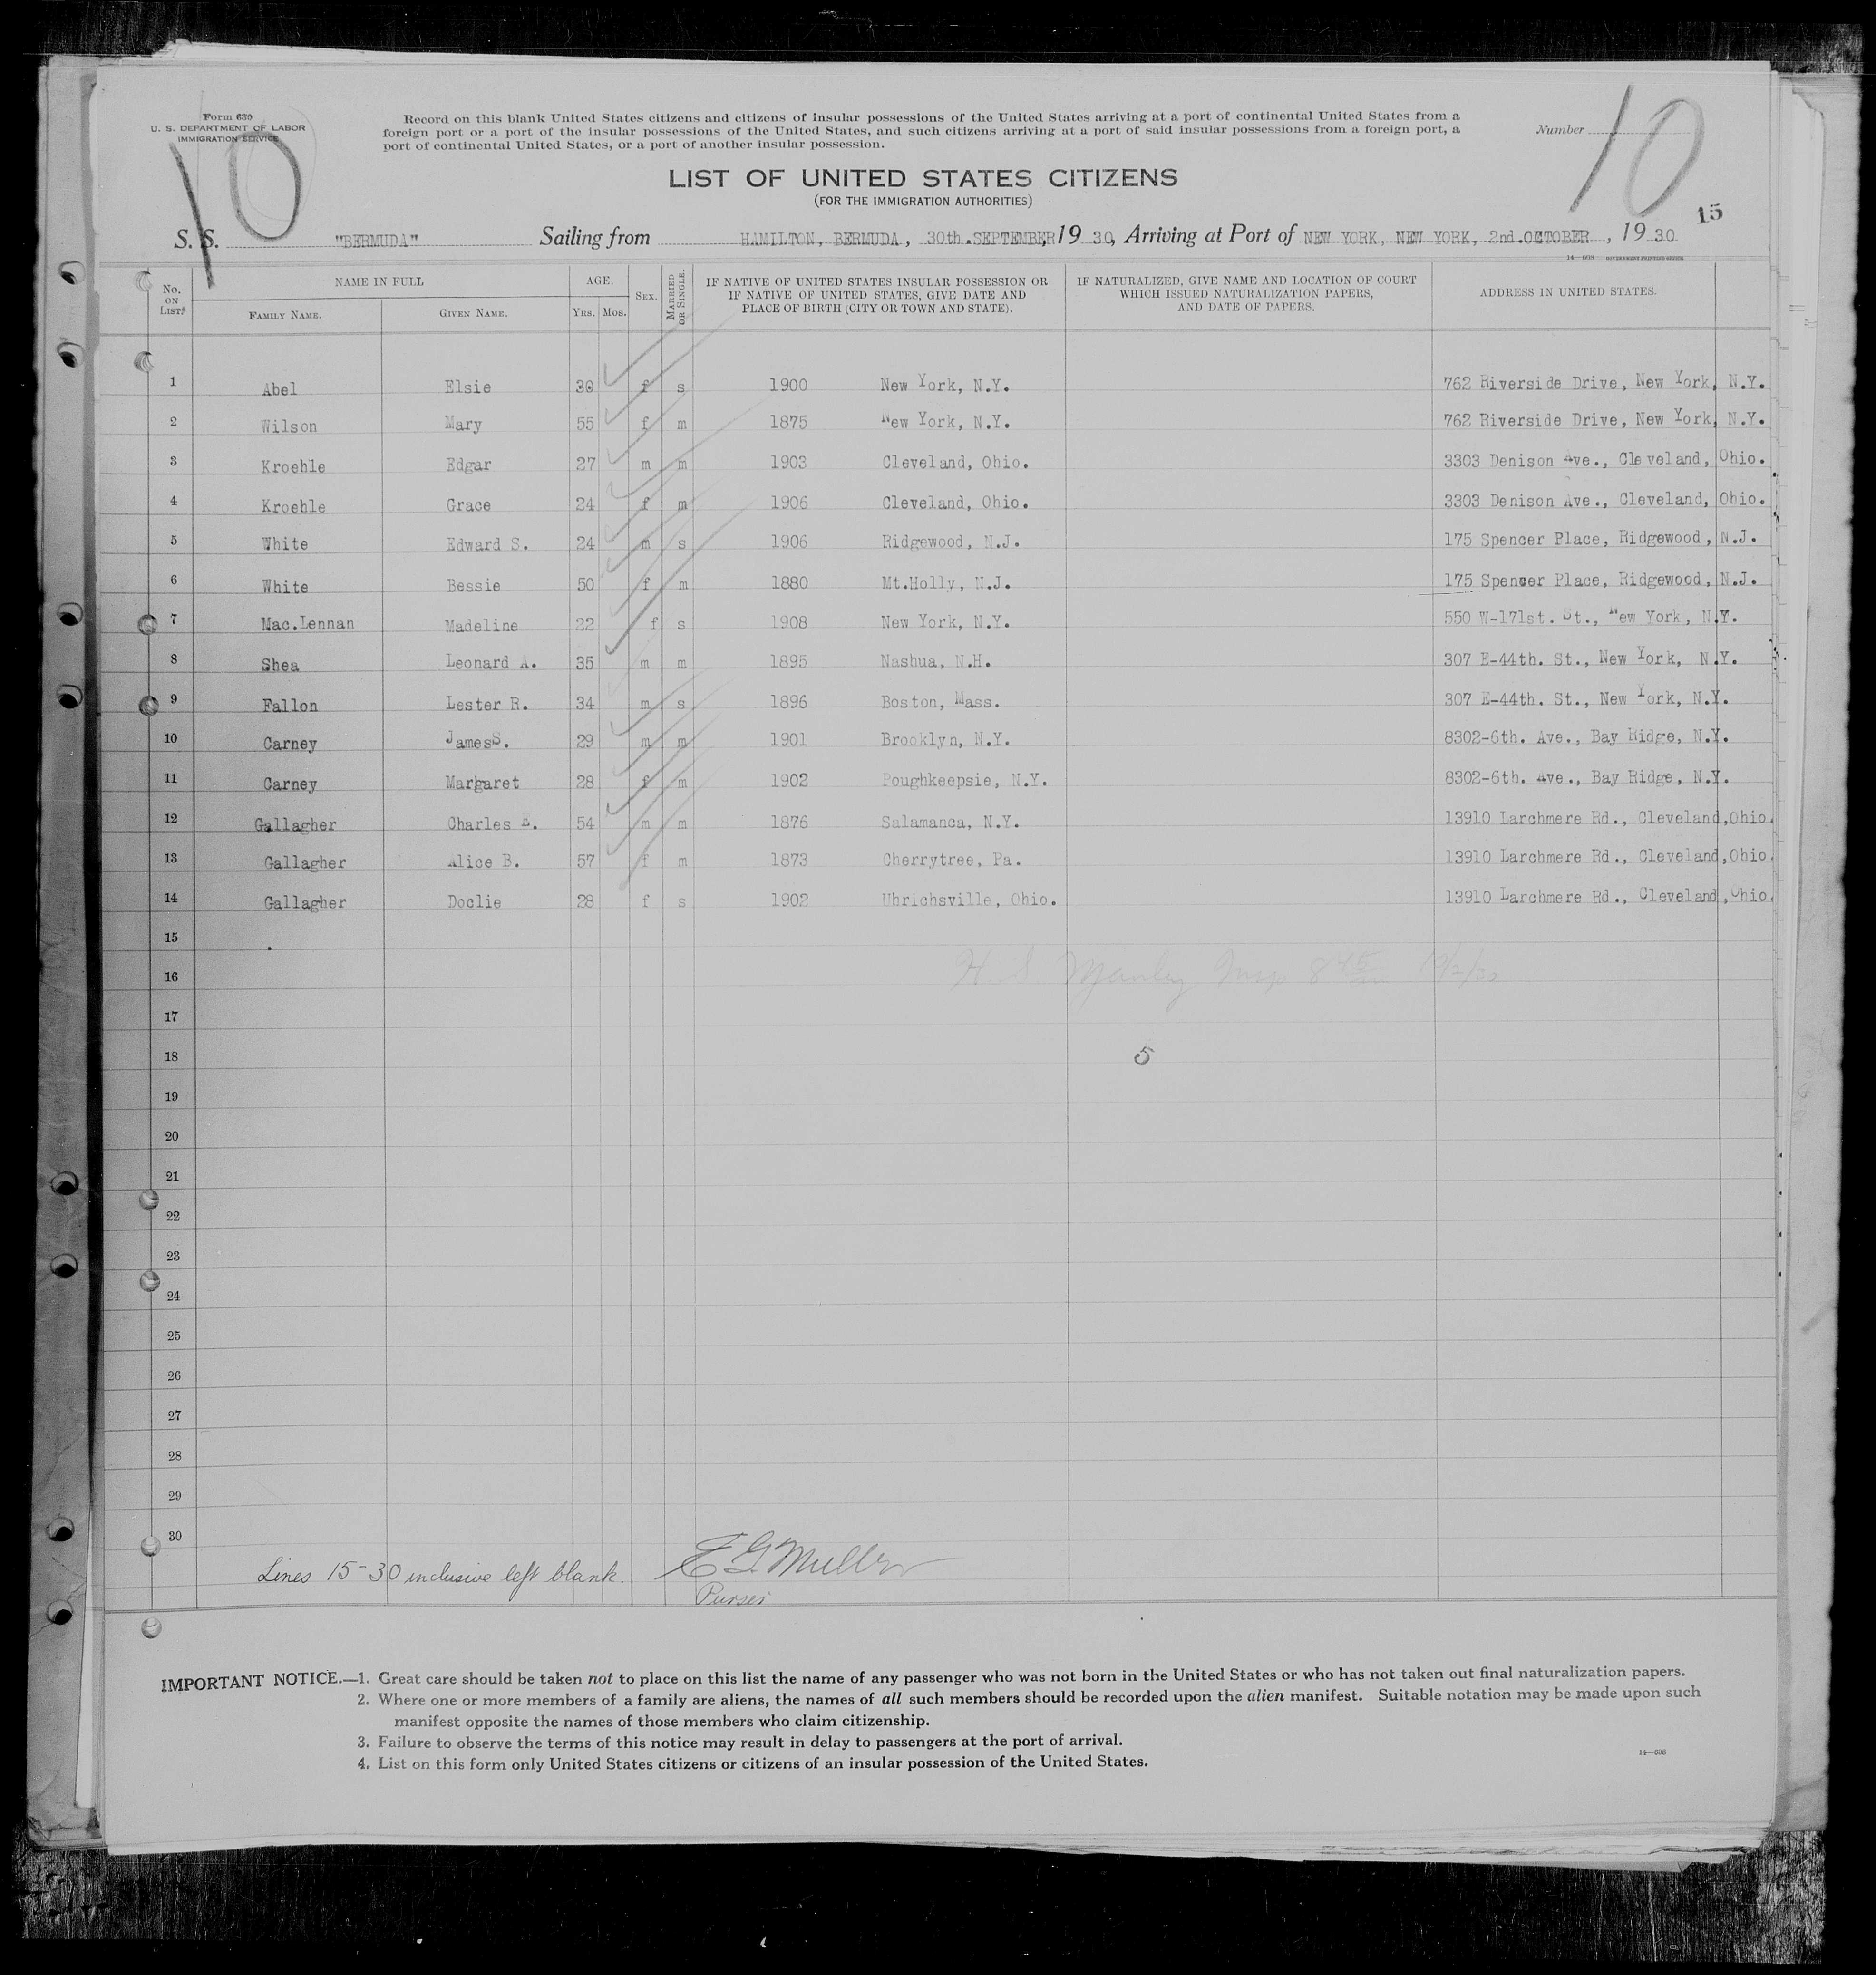 Form 630
U. S. DEPARTMENT OF LABOR
IMMIGRATION SERVICE
10
Record on this blank United States citizens and citizens of insular possessions of the United States arriving at a port of continental United States from a
foreign port or a port of the insular possessions of the United States, and such citizens arriving at a port of said insular possessions from a foreign port, a
port of continental United States, or a port of another insular possession.
Number
10
15
LIST OF UNITED STATES CITIZENS
(FOR THE IMMIGRATION AUTHORITIES)
S. S. "BERMUDA" Sailing from HAMILTON, BERMUDA, 30th.SEPTEMBER, 19 30, Arriving at Port of NEW YORK, NEW YORK, 2nd.OCTOBER, 19 30
14-608 GOVERNMENT PRINTING OFFICE
No. ON LIST NAME IN FULL FAMILY NAME. GIVEN NAME. AGE. YRS. MOS. SEX. MARRIED OR SINGLE. IF NATIVE OF UNITED STATES INSULAR POSSESSION OR IF NATIVE OF UNITED STATES, GIVE DATE AND PLACE OF BIRTH (CITY OR TOWN AND STATE). IF NATURALIZED, GIVE NAME AND LOCATION OF COURT WHICH ISSUED NATURALIZATION PAPERS, AND DATE OF PAPERS. ADDRESS IN UNITED STATES.
1 Abel Elsie 30 f s 1900 New York, N.Y. 762 Riverside Drive, New York, N.Y.
2 Wilson Mary 55 f m 1875 New York, N.Y. 762 Riverside Drive, New York, N.Y.
3 Kroehle Edgar 27 m m 1903 Cleveland, Ohio. 3303 Denison Ave., Cleveland, Ohio.
4 Kroehle Grace 24 f m 1906 Cleveland, Ohio. 3303 Denison Ave., Cleveland, Ohio.
5 White Edward S. 24 m s 1906 Ridgewood, N.J. 175 Spencer Place, Ridgewood, N.J.
6 White Bessie 50 f m 1880 Mt.Holly, N.J. 175 Spencer Place, Ridgewood, N.J.
7 Mac.Lennan Madeline 22 f s 1908 New York, N.Y. 550 W-171st. St., New York, N.Y.
8 Shea Leonard A. 35 m m 1895 Nashua, N.H. 307 E-44th. St., New York, N.Y.
9 Fallon Lester R. 34 m s 1896 Boston, Mass. 307 E-44th. St., New York, N.Y.
10 Carney JamesS. 29 m m 1901 Brooklyn, N.Y. 8302-6th. Ave., Bay Ridge, N.Y.
11 Carney Margaret 28 f m 1902 Poughkeepsie, N.Y. 8302-6th. Ave., Bay Ridge, N.Y.
12 Gallagher Charles E. 54 m m 1876 Salamanca, N.Y. 13910 Larchmere Rd., Cleveland,Ohio.
13 Gallagher Alice B. 57 f m 1873 Cherrytree, Pa. 13910 Larchmere Rd., Cleveland,Ohio.
14 Gallagher Doclie 28 f s 1902 Uhrichsville, Ohio. 13910 Larchmere Rd., Cleveland,Ohio.
15
16 H. S. Manley Insp
17
18 5
19
20
21
22
23
24
25
26
27
28
29
30
Lines 15-30 inclusive left blank. E G Muller
Purser
IMPORTANT NOTICE.—1. Great care should be taken not to place on this list the name of any passenger who was not born in the United States or who has not taken out final naturalization papers.
2. Where one or more members of a family are aliens, the names of all such members should be recorded upon the alien manifest. Suitable notation may be made upon such
manifest opposite the names of those members who claim citizenship.
3. Failure to observe the terms of this notice may result in delay to passengers at the port of arrival.
4. List on this form only United States citizens or citizens of an insular possession of the United States.
14-606